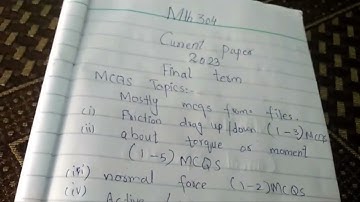 Mth 304
Current paper
2023
Final term
MCQS Topics:-
Mostly mcqs from files.
(i) Friction drag up/down (1-3) MCQS
(ii) about torque or moment
(1-5) MCQS
(iii) normal force (1-2) MCQS
(iv) Active